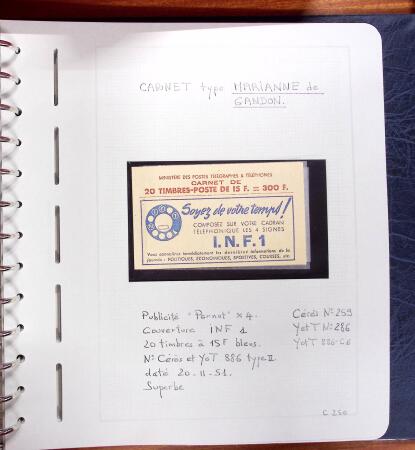 CARNET type MARIANNE de
GANDON.
MINISTÈRE DES POSTES TÉLÉGRAPHES & TÉLÉPHONES
CARNET DE
20 TIMBRES-POSTE DE 15 F. = 300 F.
Soyez de votre temps!
COMPOSEZ SUR VOTRE CADRAN
TÉLÉPHONIQUE LES 4 SIGNES
I.N.F.1
Vous connaîtrez immédiatement les dernières informations de la
journée : POLITIQUES, ÉCONOMIQUES, SPORTIVES, COURSES, etc.
Publicité "Pernot" x 4. Cérès N° 259
Couverture INF 1 YetT N° 286
20 timbres à 15F bleus. YetT 886-C6
N° Cérès et YeT 886 type II.
daté 20-11-51.
Superbe
C 250